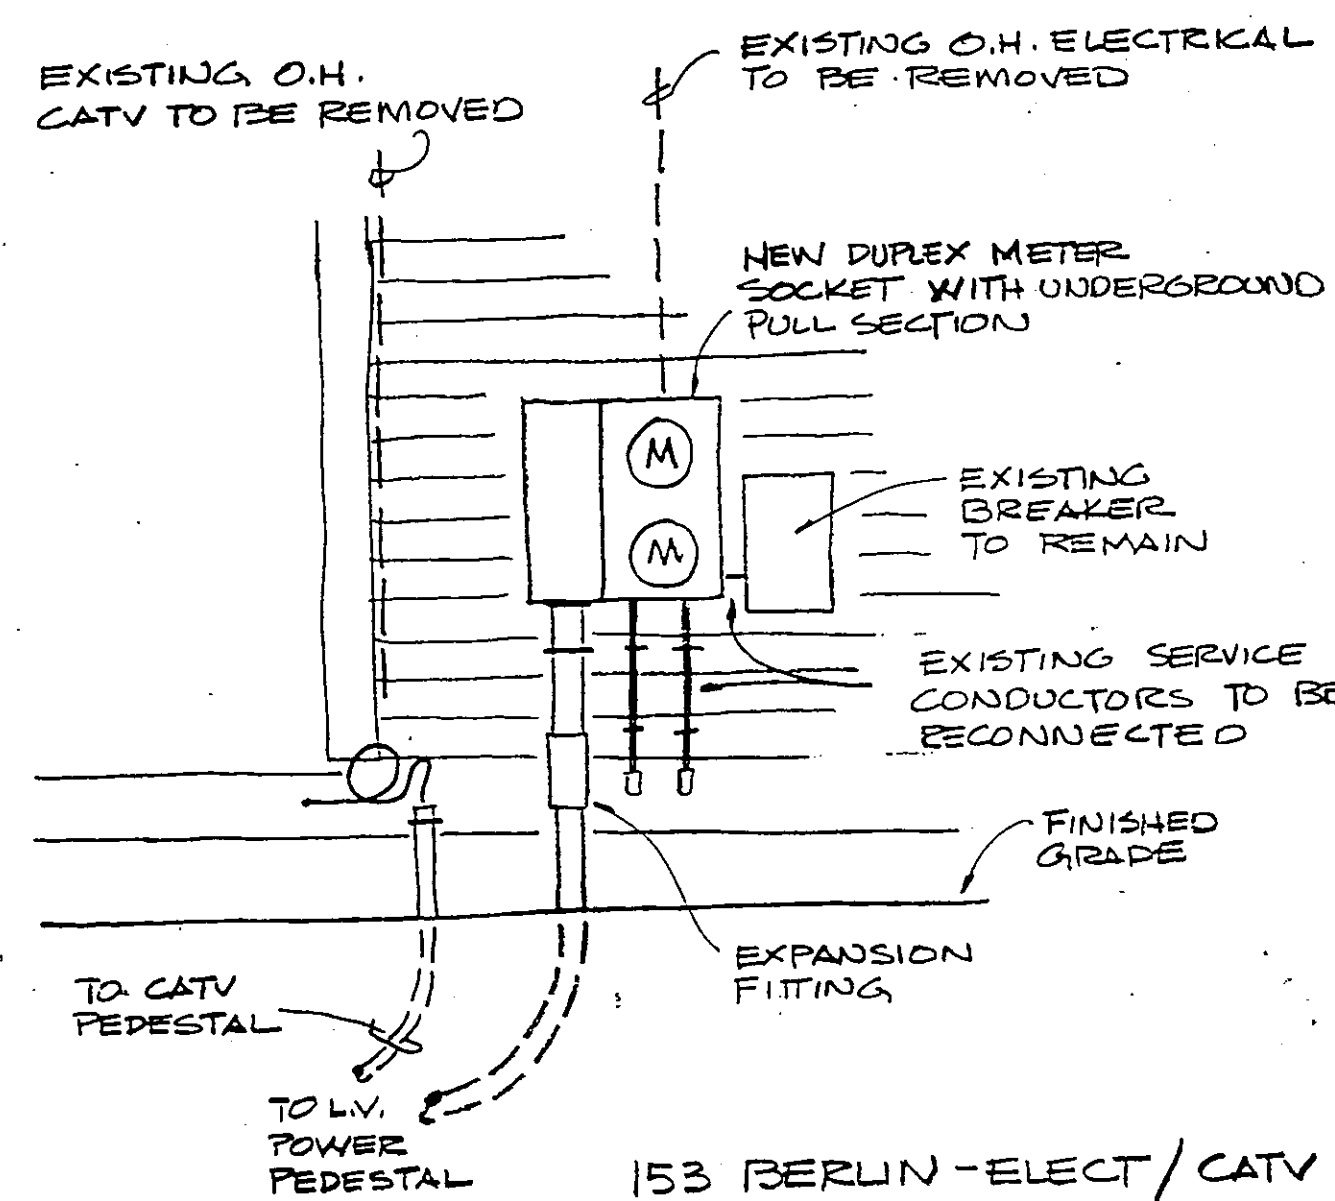 EXISTING O.H.
CATV TO BE REMOVED
EXISTING O.H. ELECTRICAL
TO BE REMOVED
NEW DUPLEX METER
SOCKET WITH UNDERGROUND
PULL SECTION
M
M
EXISTING
BREAKER
TO REMAIN
EXISTING SERVICE
CONDUCTORS TO BE
RECONNECTED
FINISHED
GRADE
EXPANSION
FITTING
TO CATV
PEDESTAL
TO L.V.
POWER
PEDESTAL
153 BERLIN - ELECT / CATV